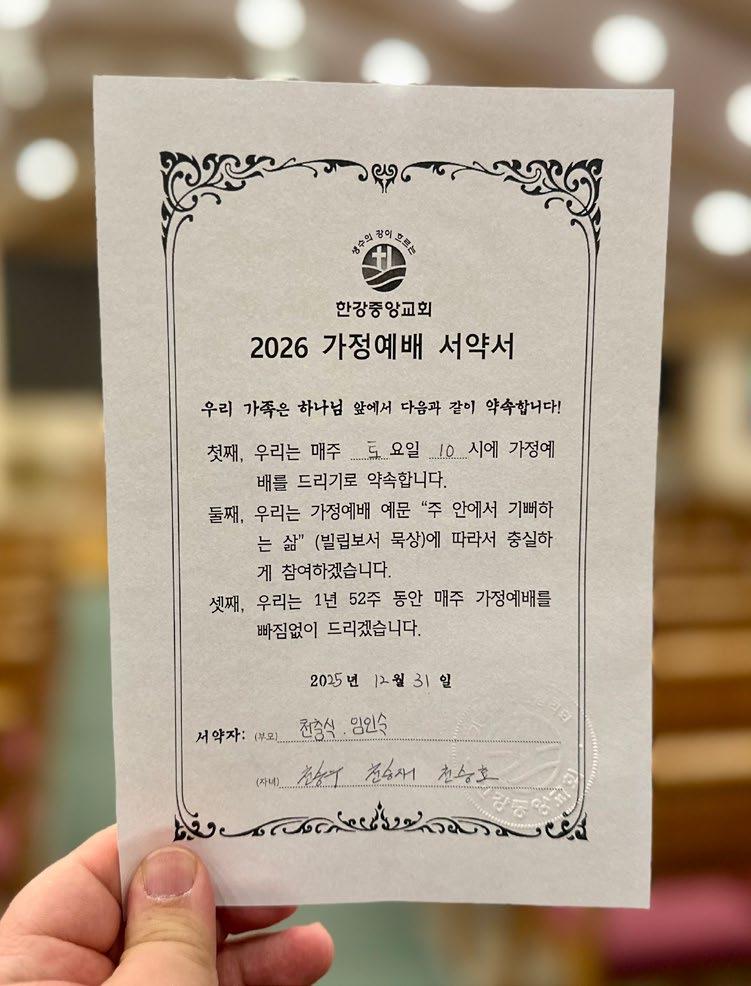 생수의 강이 흐르는
한강중앙교회
2026 가정예배 서약서
우리 가족은 하나님 앞에서 다음과 같이 약속합니다!
첫째, 우리는 매주 토요일 10시에 가정예
배를 드리기로 약속합니다.
둘째, 우리는 가정예배 예문 “주 안에서 기뻐하
는 삶” (빌립보서 묵상)에 따라서 충실하
게 참여하겠습니다.
셋째, 우리는 1년 52주 동안 매주 가정예배를
빠짐없이 드리겠습니다.
2025년 12월 31일
서약자: (부모) 천충식. 임인숙
(자녀) 천승호
중앙교회